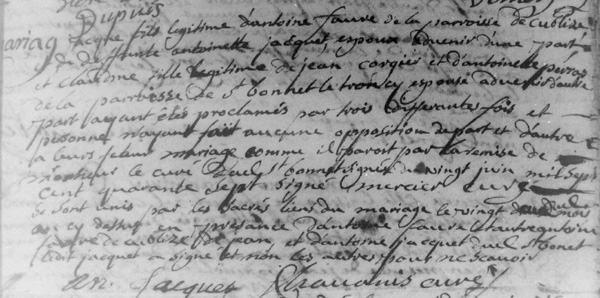 Dupuis
mariag
Jacque fils legitime d'antoine faure de la parroisse de cublize
et de deffunte antoinette jacquet espoux advenir d'une part
et Claudine fille legitime de jean corgier et d'antoinette
de la parroisse de St bonnet le troncy espouse advenir d'autre
part ayant etés proclamés par trois differantes fois et
personne n'ayant fait aucune opposition de part et d'autre
a leurs futur mariage comme il paroit par la remise de
monsieur le curé dudt St bonnet signés du vingt juin mil sept
cent quarante sept signé mercier curé
se sont unis par les sacrés liens du mariage le vingt dud mois
cy dessus en presance d'antoine faure
faure de cublize de jean et d'antoine jacquet dud St bonet
ledit jacquet a signé et non les autres pour ne scavoir
an. jacquet Chavanis curé